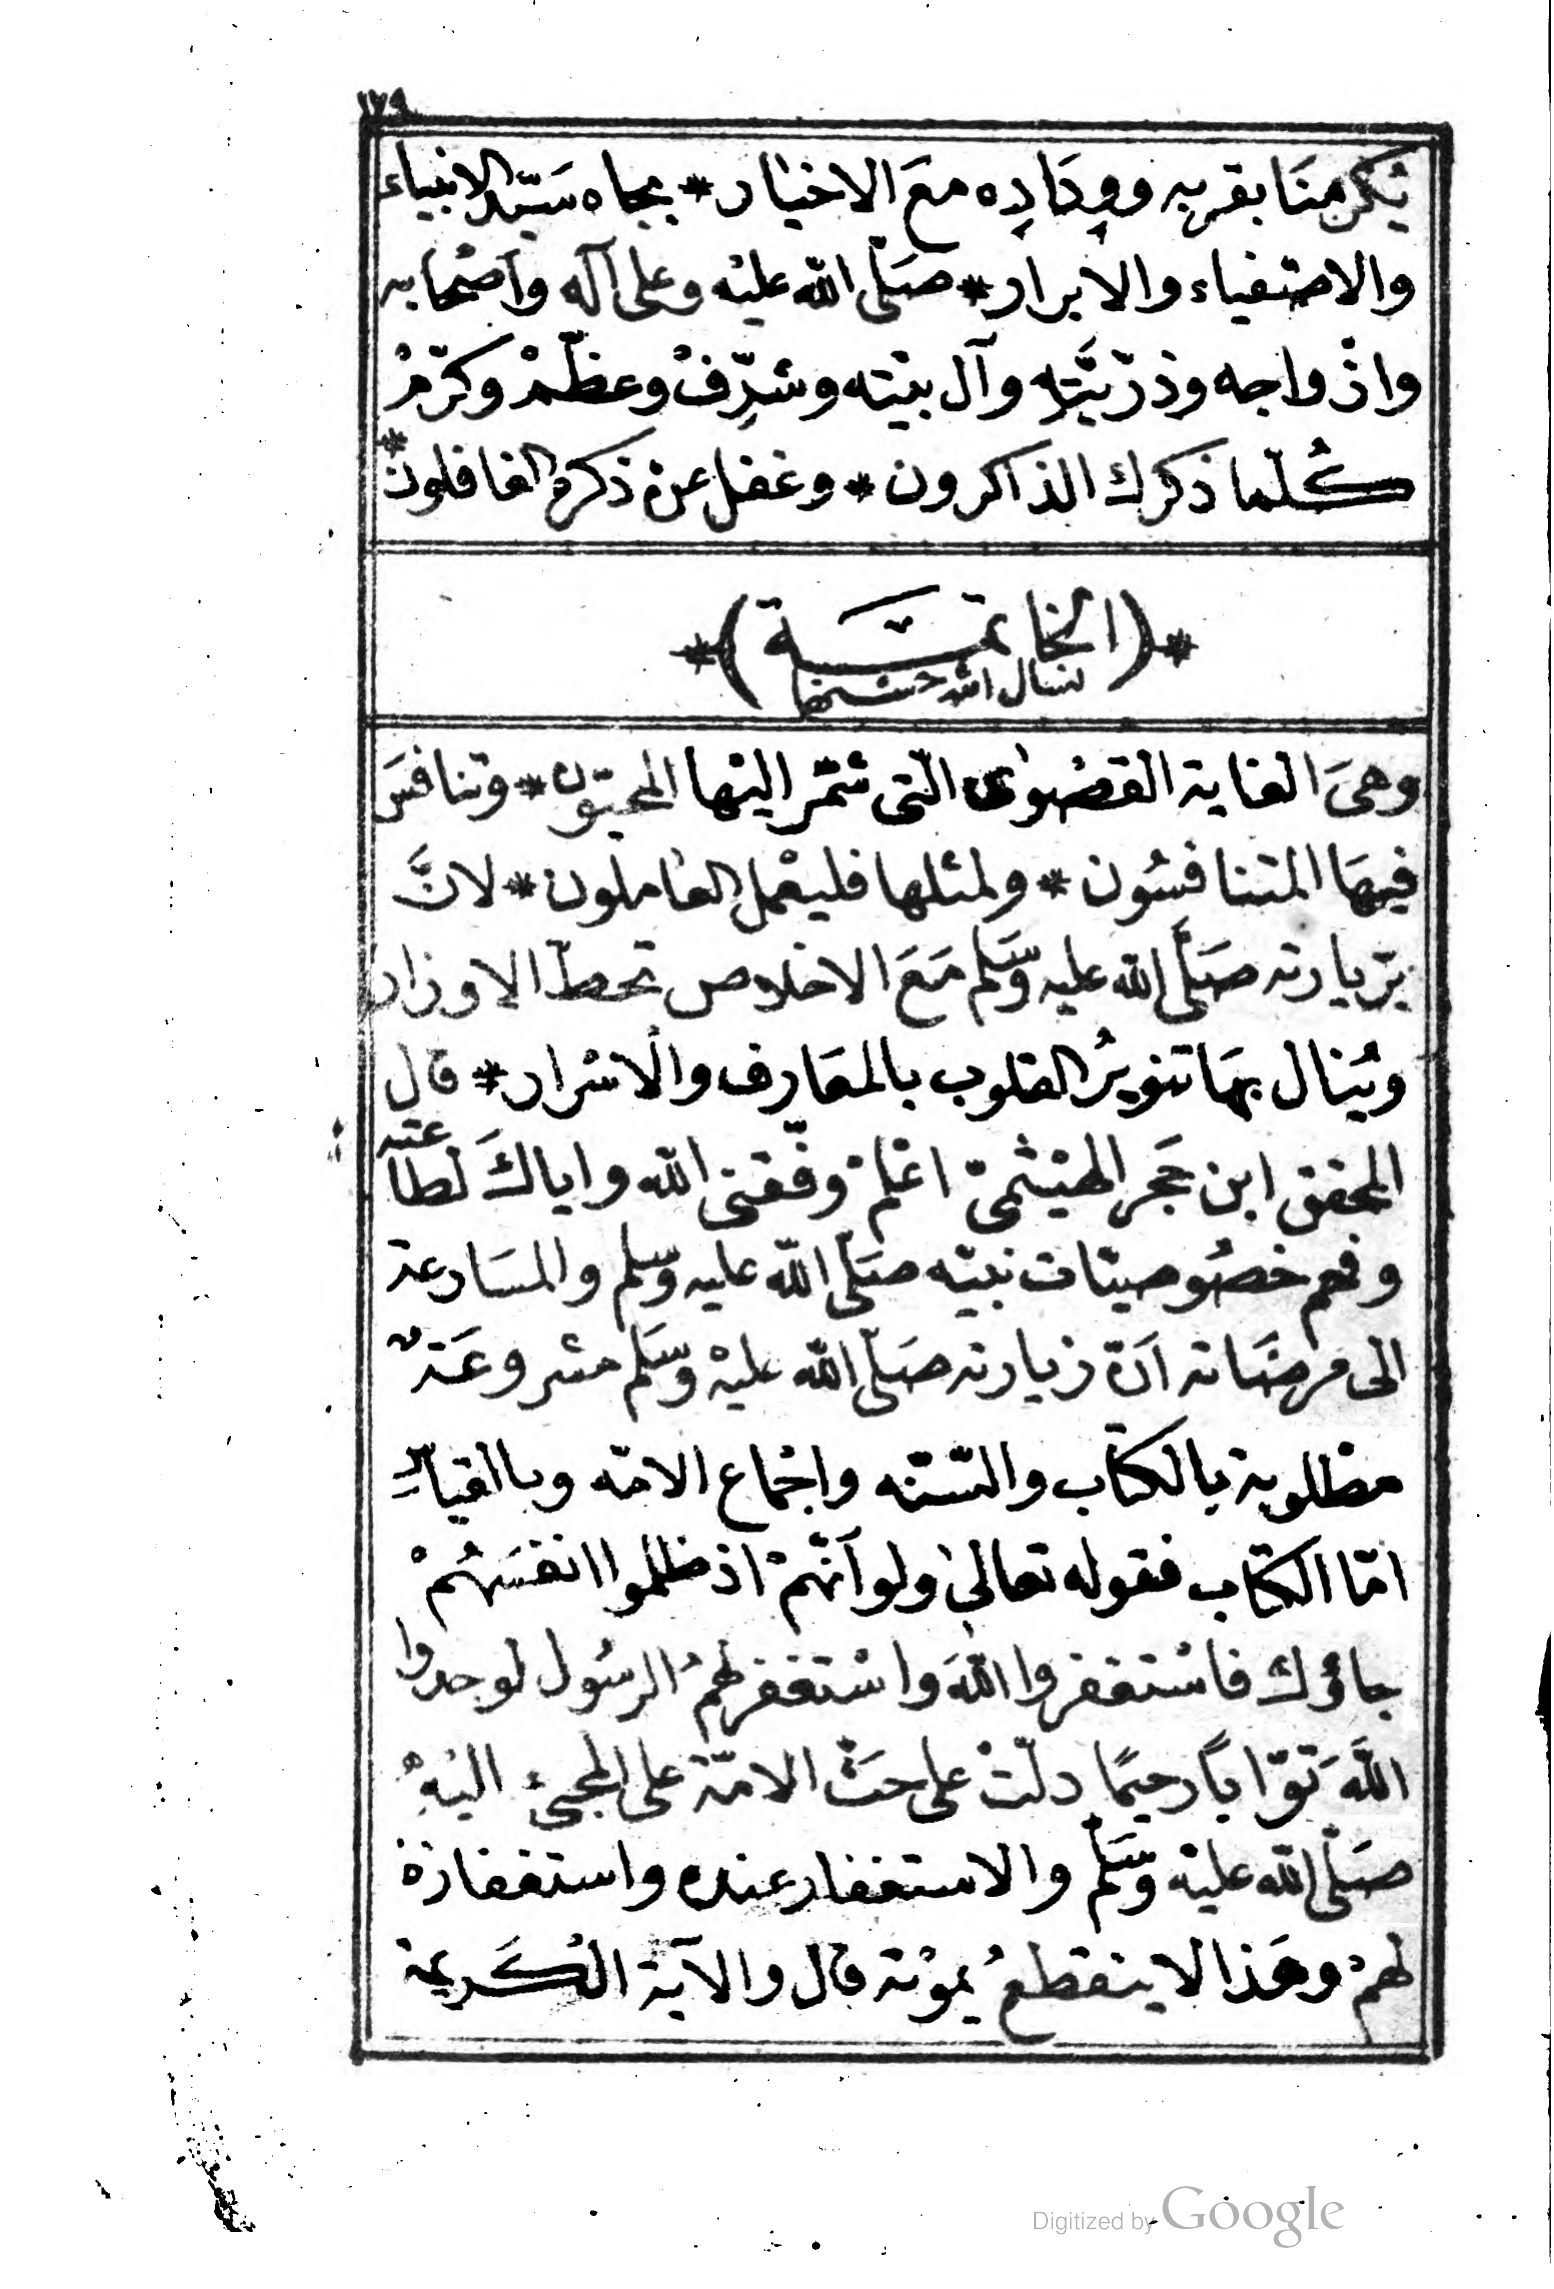 ١٢٩
يُكرمنَا بقربه ووِدَادِه معَ الاخيار * بجاه سَيّد الانبياء
والاصفياء والابرار * صَلّى الله عليْه وعلى آله واَصْحابه
وازْواجه وذرّيَّتِه وآل بيْته وشرِّفْ وعظّمْ وكرّمْ
كُلّما ذكرك الذاكرون * وغفل عن ذكره الغافلون *
*(الخاتمة)*
نسال الله حسنها
وهىَ الغاية القصْوٰى الّتى شمّر اليْها المحبّون * وتنافسَ
فيهَا المتنافسُون * ولمثلها فليعْمل العٰاملون * لانَّ
بزيارته صَلَّى الله عليه وَسَلم مَعَ الاخلاص تحطّ الاوزار
ويُنال بهَا تنويرُ القلوب بالمعَارف والاسْرار * قال
المحقق ابن حَجر الهيْثمىّ اعْلمْ وفّقنى الله واياكَ لطاعته
وفهم خصُوصيّات نبيّه صَلّى الله عليه وَسّلم والمسَارعة
الى مرضَاته اَنّ زيارته صَلّى الله عليْه وَسَلم مشروعَة
مطلوبة بالكتاب والسّنّه واجْماع الامّه وبالقياسِ
امّا الكتاب فقوله تعالىٰ ولو اَنّهمْ اذ ظلموا انفسَهُمْ
جاؤك فاسْتغفروا اللهَ واسْتغفر لهمُ الرسُول لوجدوا
اللَّهَ توّابًا رحيمًا دلّتْ على حَثّ الامّة على المجىء اليْهِ
صَلّى الله عليْه وَسَلّم والاستغفار عنده واستغفاره
لهمْ وهَذا لا ينقطعُ بموْته قال والآية الكَريمة
Digitized by Google